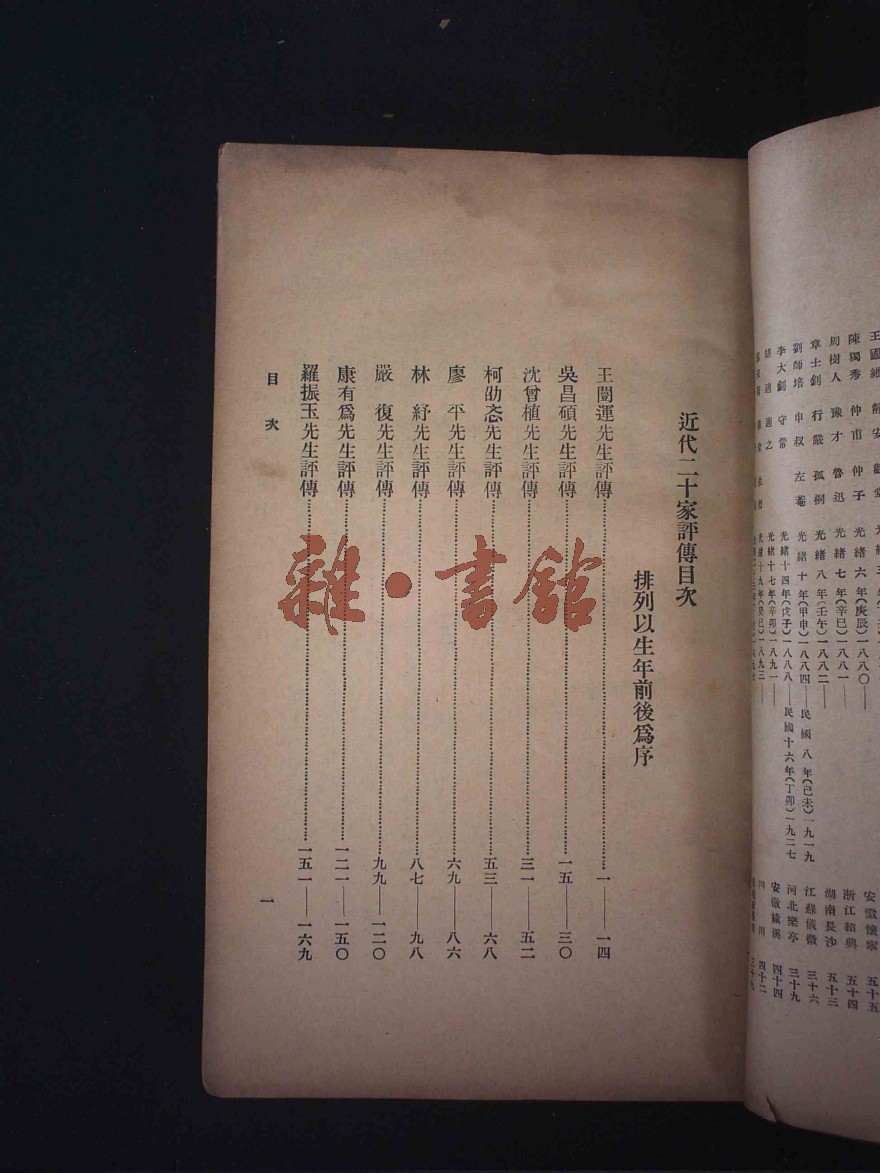 王國維
陳獨秀 仲甫 仲子 光緒六年(庚辰)一八八〇—— 安徽懷寧 五十五
周樹人 豫才 魯迅 光緒七年(辛巳)一八八一—— 浙江紹興 五十四
章士釗 行嚴 孤桐 光緒八年(壬午)一八八二—— 湖南長沙 五十三
劉師培 申叔 左菴 光緒十年(甲申)一八八四——民國八年(己未)一九一九 江蘇儀徵 三十六
李大釗 守常 光緒十四年(戊子)一八八八——民國十六年(丁卯)一九二七 河北樂亭 三十九
胡適 適之 光緒十七年(辛卯)一八九一—— 安徽績溪 四十四
光緒十九年(癸巳)一八九三—— 四川 四十二
近代二十家評傳目次
排列以生年前後爲序
王闓運先生評傳……一——一四
吳昌碩先生評傳……一五——三〇
沈曾植先生評傳……三一——五二
柯劭忞先生評傳……五三——六八
廖平先生評傳……六九——八六
林紓先生評傳……八七——九八
嚴復先生評傳……九九——一二〇
康有爲先生評傳……一二一——一五〇
羅振玉先生評傳……一五一——一六九
目次 一
雜·書館